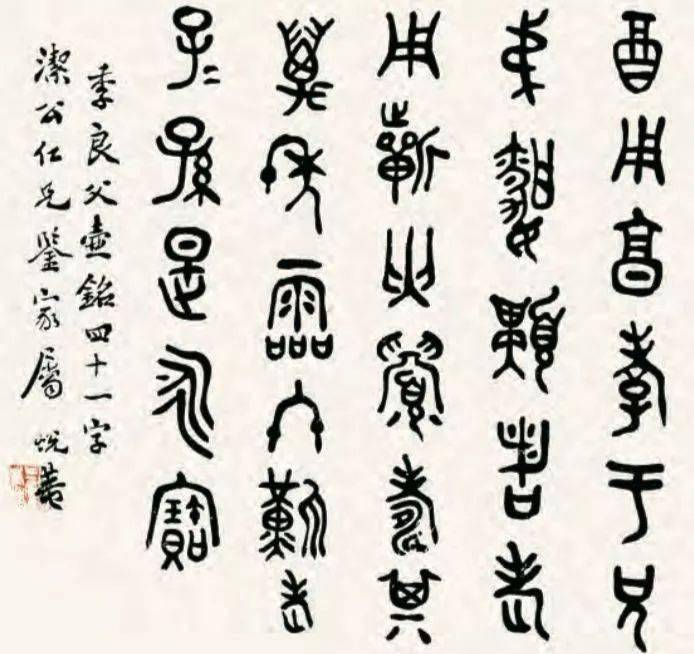 酉用享孝于兄
弟婚顜者老
用蘄眉壽其
萬年霝冬難老
子〻孫是永寶
季良父壺銘四十一字
潔公仁兄鑒家屬